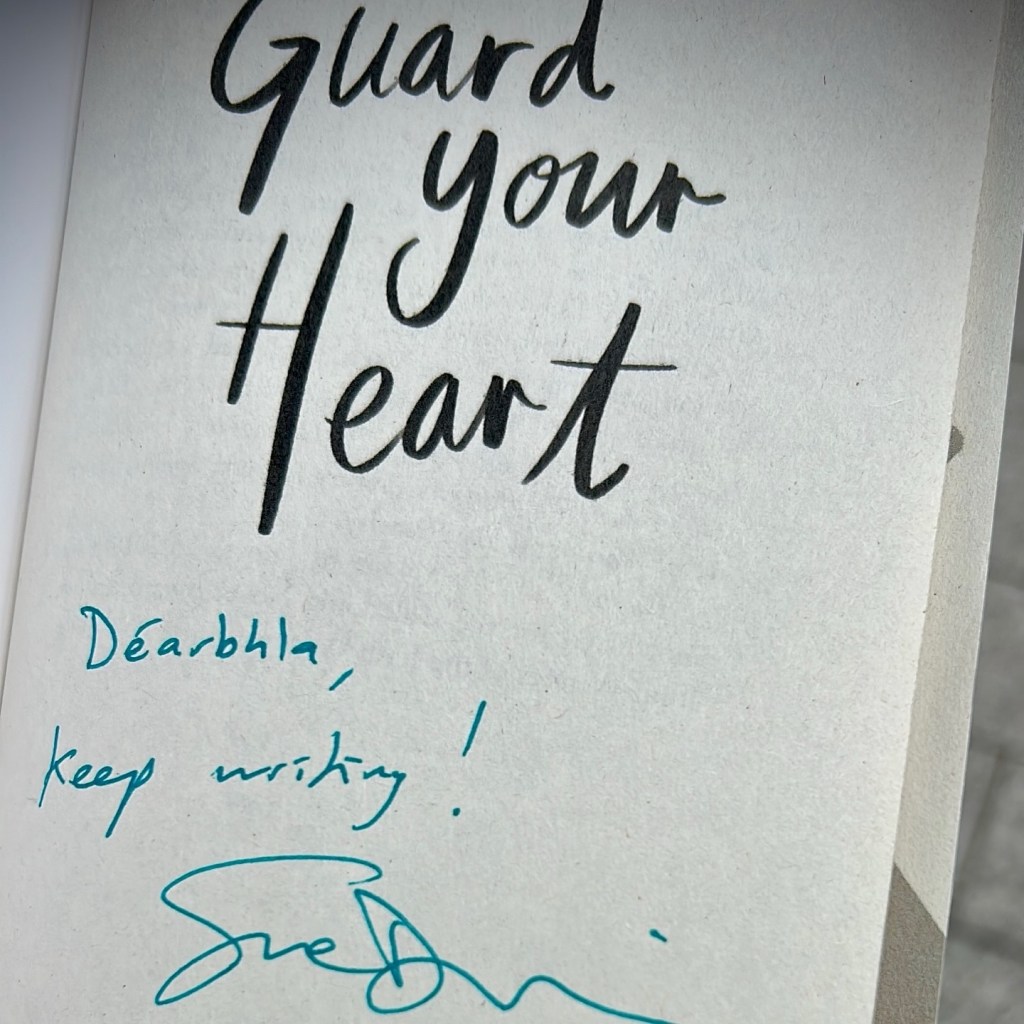 Guard
your
Heart
Déarbhla,
keep writing!
Sue D